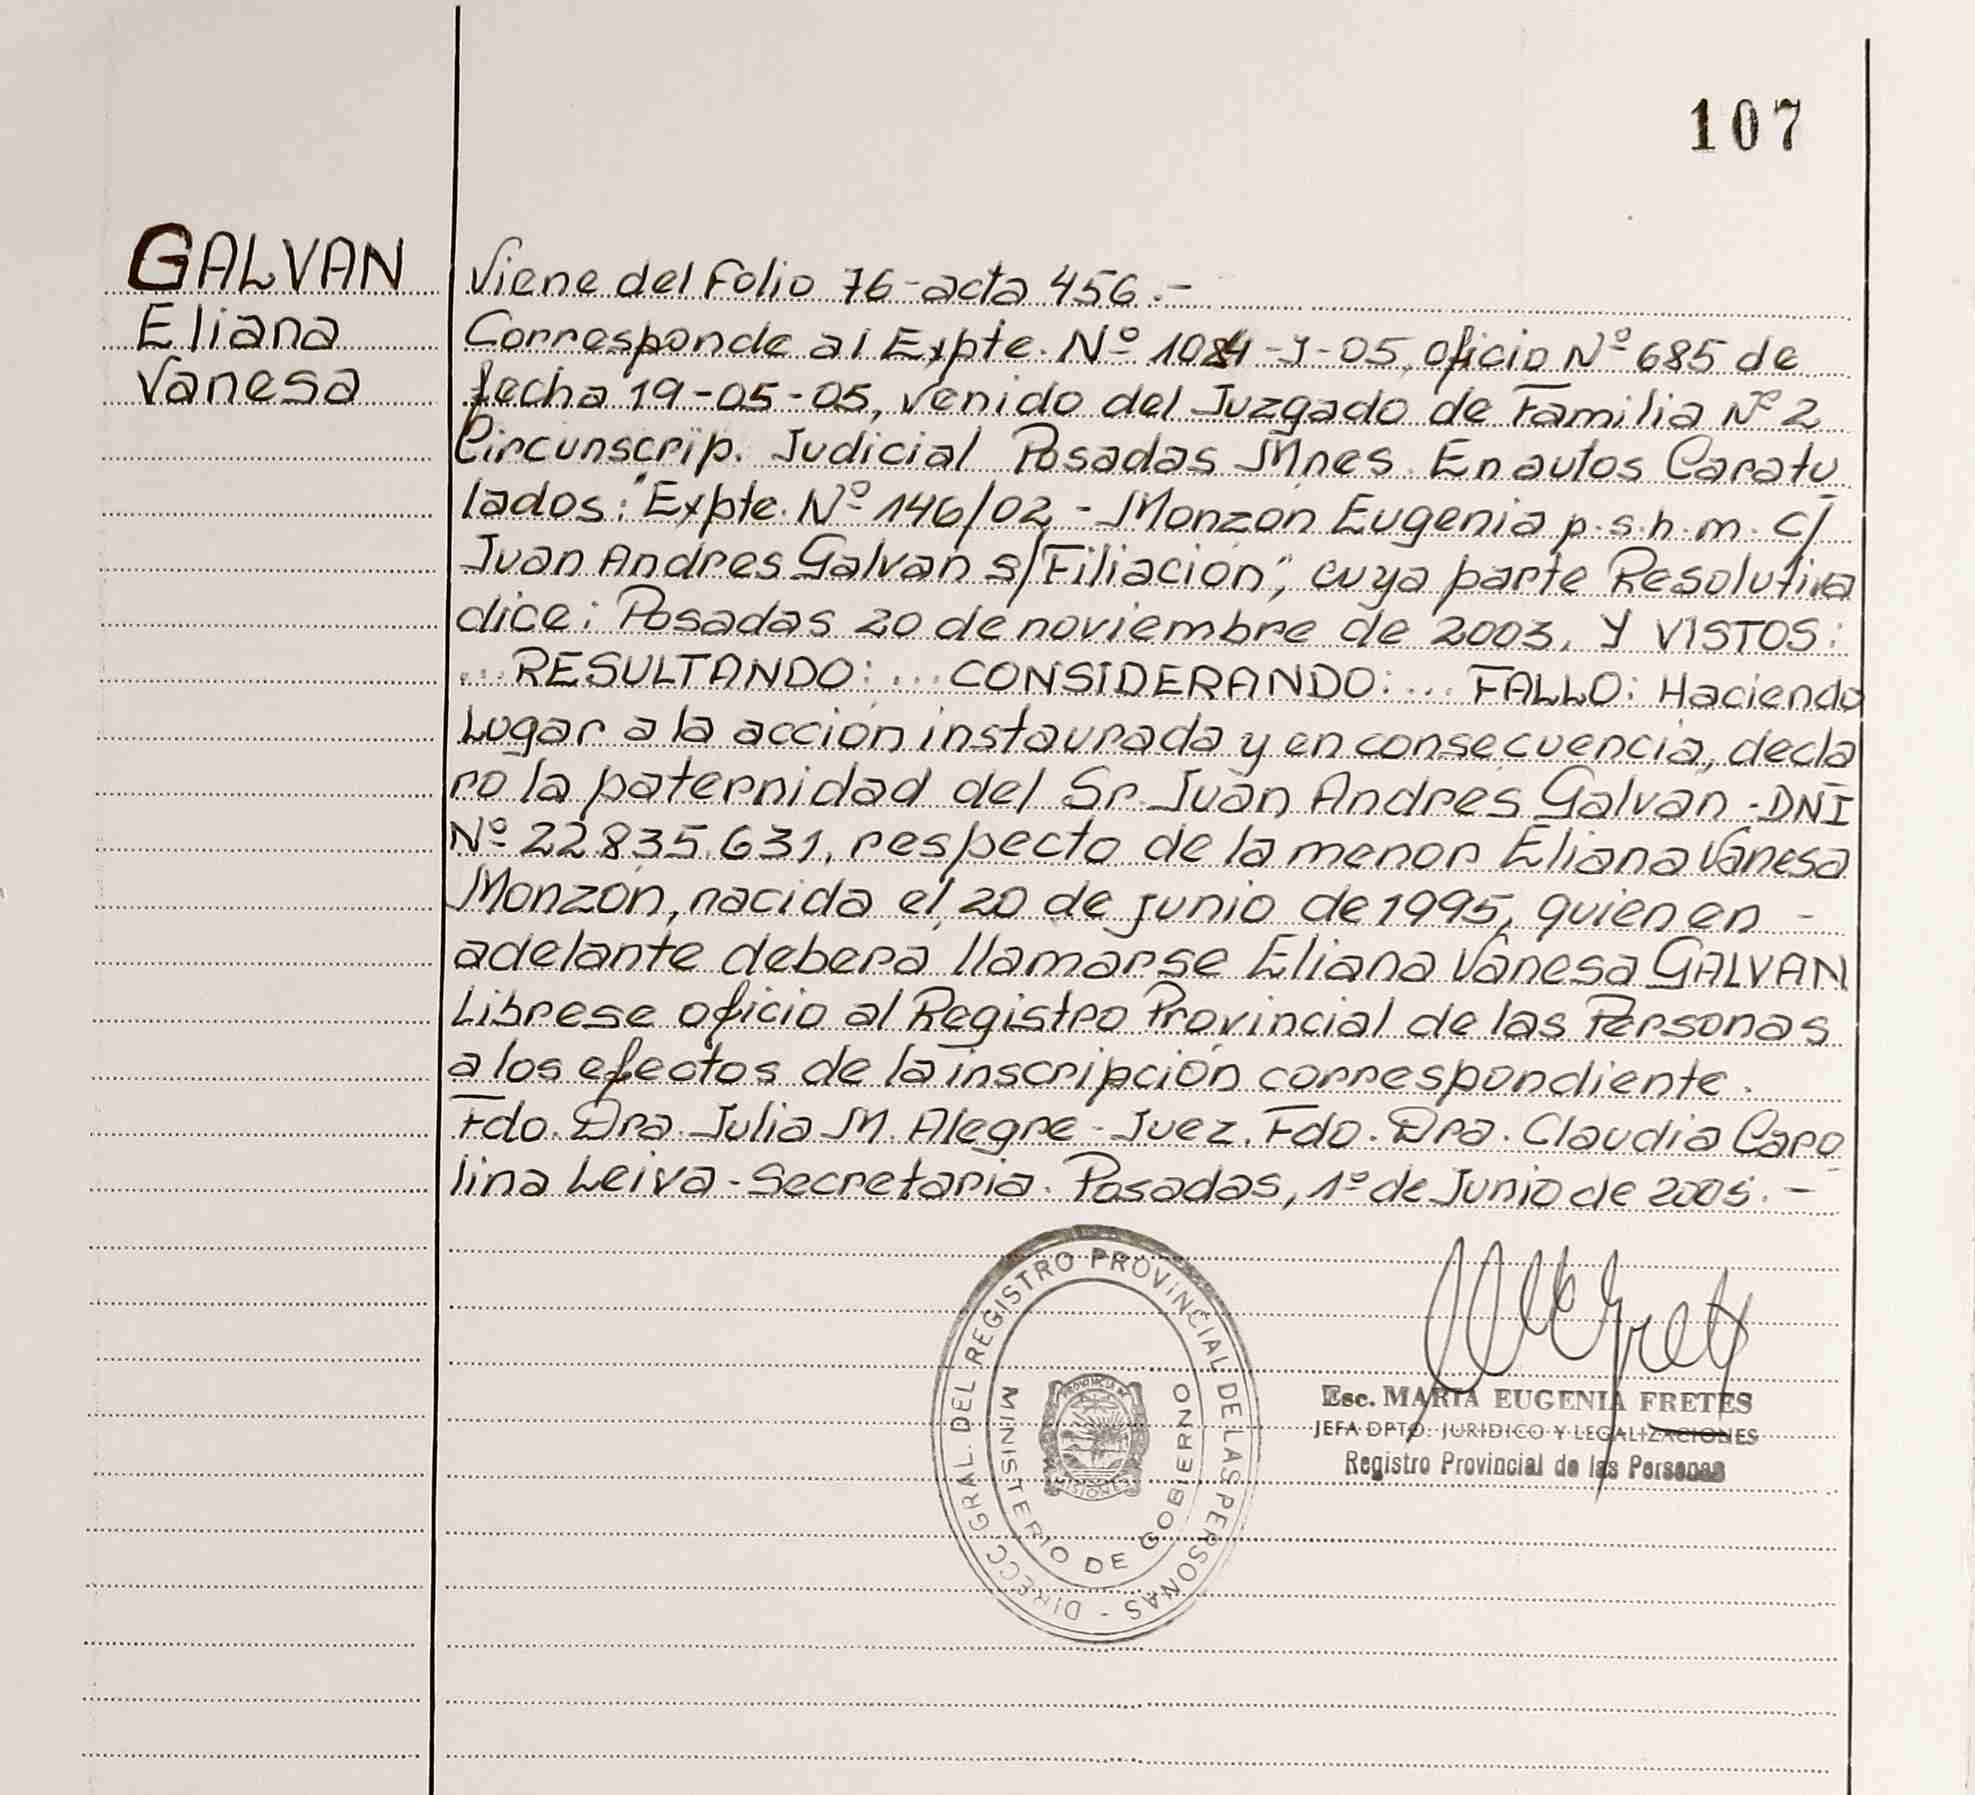 107
GALVAN
Eliana
Vanesa
Viene del Folio 76-acta 456.-
Corresponde al Expte. Nº 1084-J-05, oficio Nº 685 de
fecha 19-05-05, venido del Juzgado de Familia Nº 2
Circunscrip. Judicial Posadas Mnes. En autos Caratu
lados: "Expte. Nº 146/02 - Monzón Eugenia p.s.h.m. c/
Juan Andres Galvan s/Filiación", cuya parte Resolutiva
dice: Posadas 20 de noviembre de 2003, Y VISTOS:
... RESULTANDO: ... CONSIDERANDO: ... FALLO: Haciendo
Lugar a la acción instaurada y en consecuencia, decla
ro la paternidad del Sr. Juan Andres Galvan - DNI
Nº 22.835.631, respecto de la menor Eliana Vanesa
Monzón, nacida el 20 de junio de 1995, quien en -
adelante deberá llamarse Eliana Vanesa GALVAN
Librese oficio al Registro Provincial de las Personas
a los efectos de la inscripción correspondiente.
Fdo. Dra. Julia M. Alegre - Juez. Fdo. Dra. Claudia Caro
lina Leiva - Secretaria. Posadas, 1º de Junio de 2005.-
DIRECC GRAL. DEL REGISTRO PROVINCIAL DE LAS PERSONAS -
MINISTERIO DE GOBIERNO
PROVINCIA DE
MISIONES
Esc. MARIA EUGENIA FRETES
JEFA DPTO. JURIDICO Y LEGALIZACIONES
Registro Provincial de las Personas